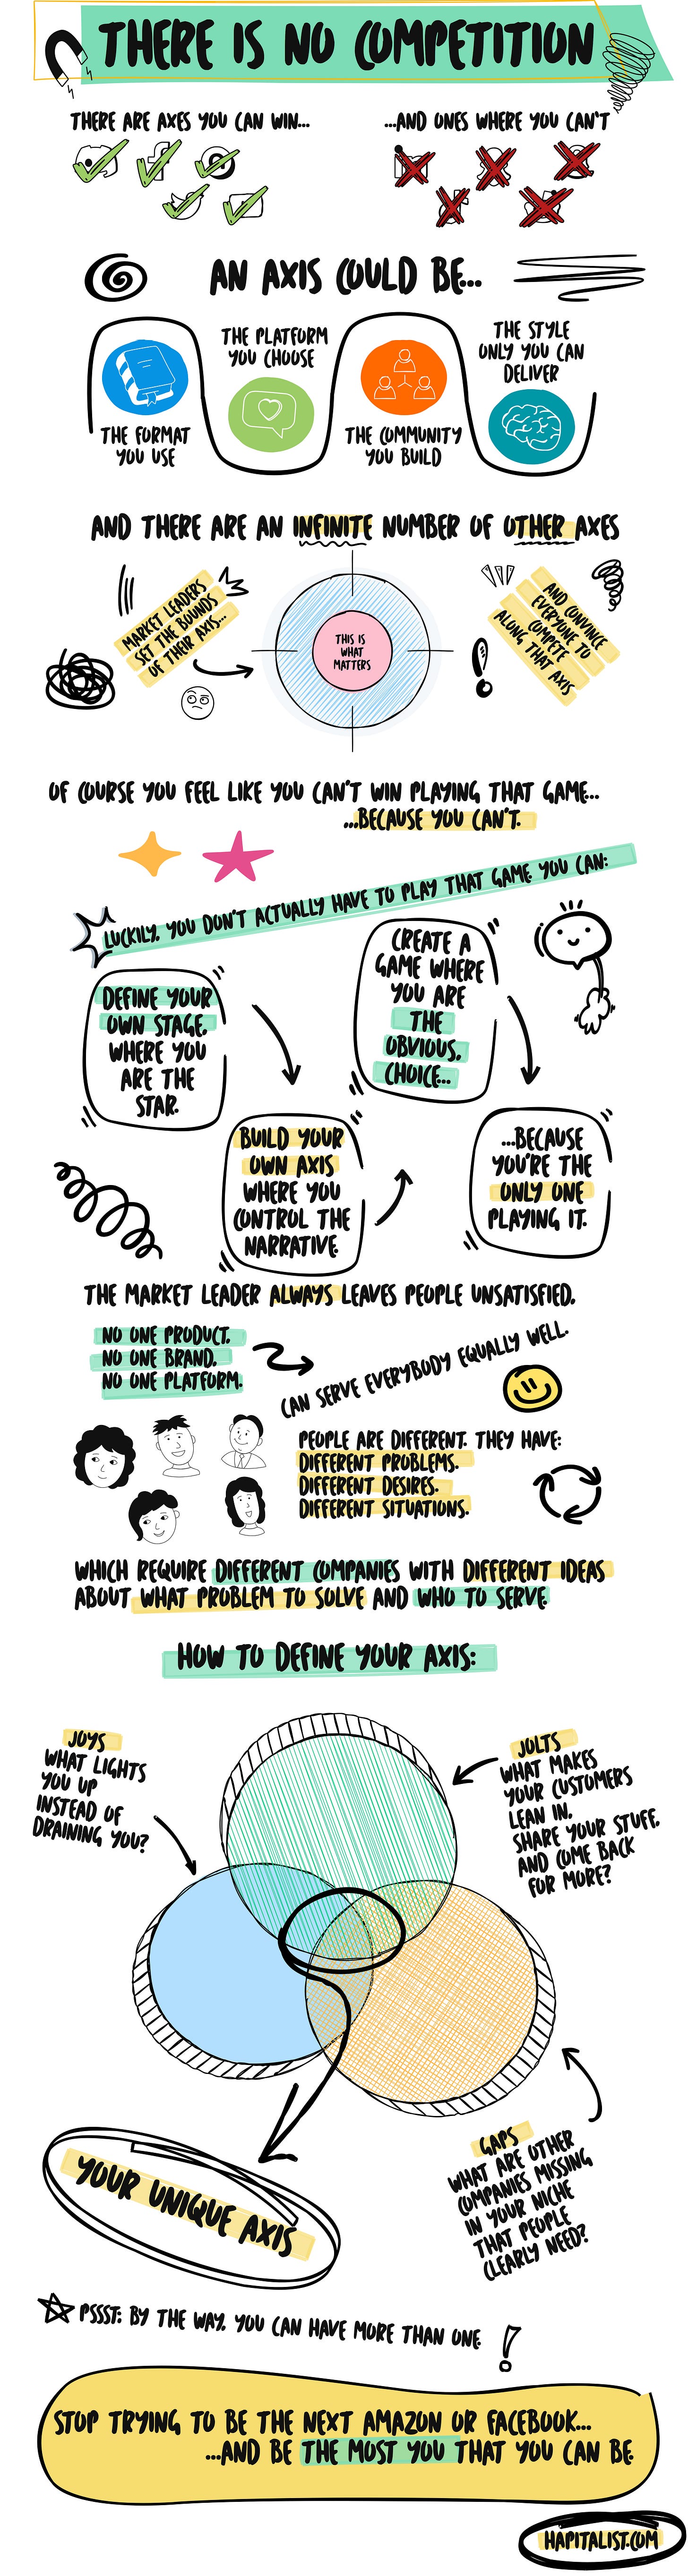 THERE IS NO COMPETITION
THERE ARE AXES YOU CAN WIN...
...AND ONES WHERE YOU CAN'T
AN AXIS COULD BE...
THE FORMAT
YOU USE
THE PLATFORM
YOU CHOOSE
THE COMMUNITY
YOU BUILD
THE STYLE
ONLY YOU CAN
DELIVER
AND THERE ARE AN INFINITE NUMBER OF OTHER AXES
MARKET LEADERS
SET THE BOUNDS
OF THEIR AXIS...
THIS IS
WHAT
MATTERS
AND CONVINCE
EVERYONE TO
COMPETE
ALONG THAT AXIS
OF COURSE YOU FEEL LIKE YOU CAN'T WIN PLAYING THAT GAME...
...BECAUSE YOU CAN'T.
LUCKILY, YOU DON'T ACTUALLY HAVE TO PLAY THAT GAME. YOU CAN:
DEFINE YOUR
OWN STAGE,
WHERE YOU
ARE THE
STAR.
BUILD YOUR
OWN AXIS
WHERE YOU
CONTROL THE
NARRATIVE.
CREATE A
GAME WHERE
YOU ARE
THE
OBVIOUS,
CHOICE...
...BECAUSE
YOU'RE THE
ONLY ONE
PLAYING IT.
THE MARKET LEADER ALWAYS LEAVES PEOPLE UNSATISFIED.
NO ONE PRODUCT.
NO ONE BRAND.
NO ONE PLATFORM.
CAN SERVE EVERYBODY EQUALLY WELL.
PEOPLE ARE DIFFERENT. THEY HAVE:
DIFFERENT PROBLEMS.
DIFFERENT DESIRES.
DIFFERENT SITUATIONS.
WHICH REQUIRE DIFFERENT COMPANIES WITH DIFFERENT IDEAS
ABOUT WHAT PROBLEM TO SOLVE AND WHO TO SERVE.
HOW TO DEFINE YOUR AXIS:
JOYS
WHAT LIGHTS
YOU UP
INSTEAD OF
DRAINING YOU?
JOLTS
WHAT MAKES
YOUR CUSTOMERS
LEAN IN,
SHARE YOUR STUFF,
AND COME BACK
FOR MORE?
GAPS
WHAT ARE OTHER
COMPANIES MISSING
IN YOUR NICHE
THAT PEOPLE
CLEARLY NEED?
YOUR UNIQUE AXIS
PSSST: BY THE WAY, YOU CAN HAVE MORE THAN ONE
STOP TRYING TO BE THE NEXT AMAZON OR FACEBOOK...
...AND BE THE MOST YOU THAT YOU CAN BE.
HAPITALIST.COM